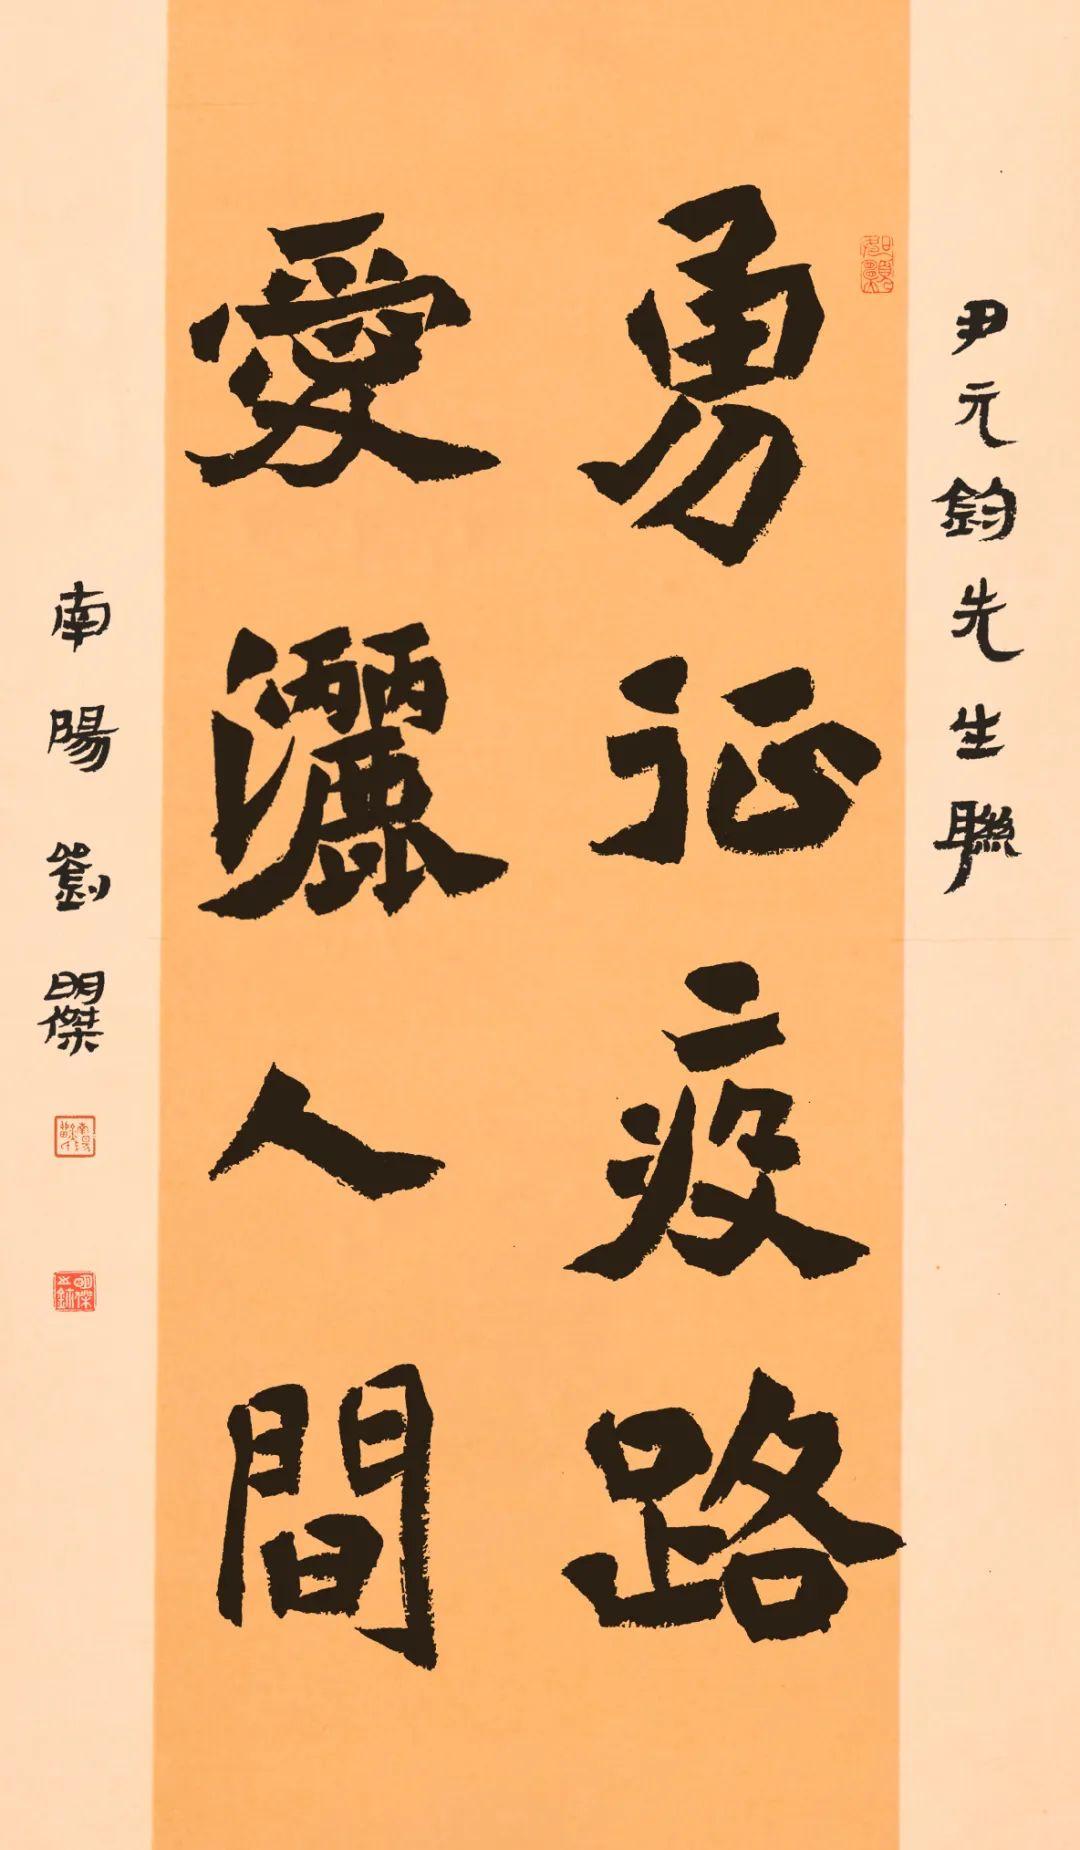 尹元鈞先生聯
勇征疫路
愛灑人間
南陽劉明傑